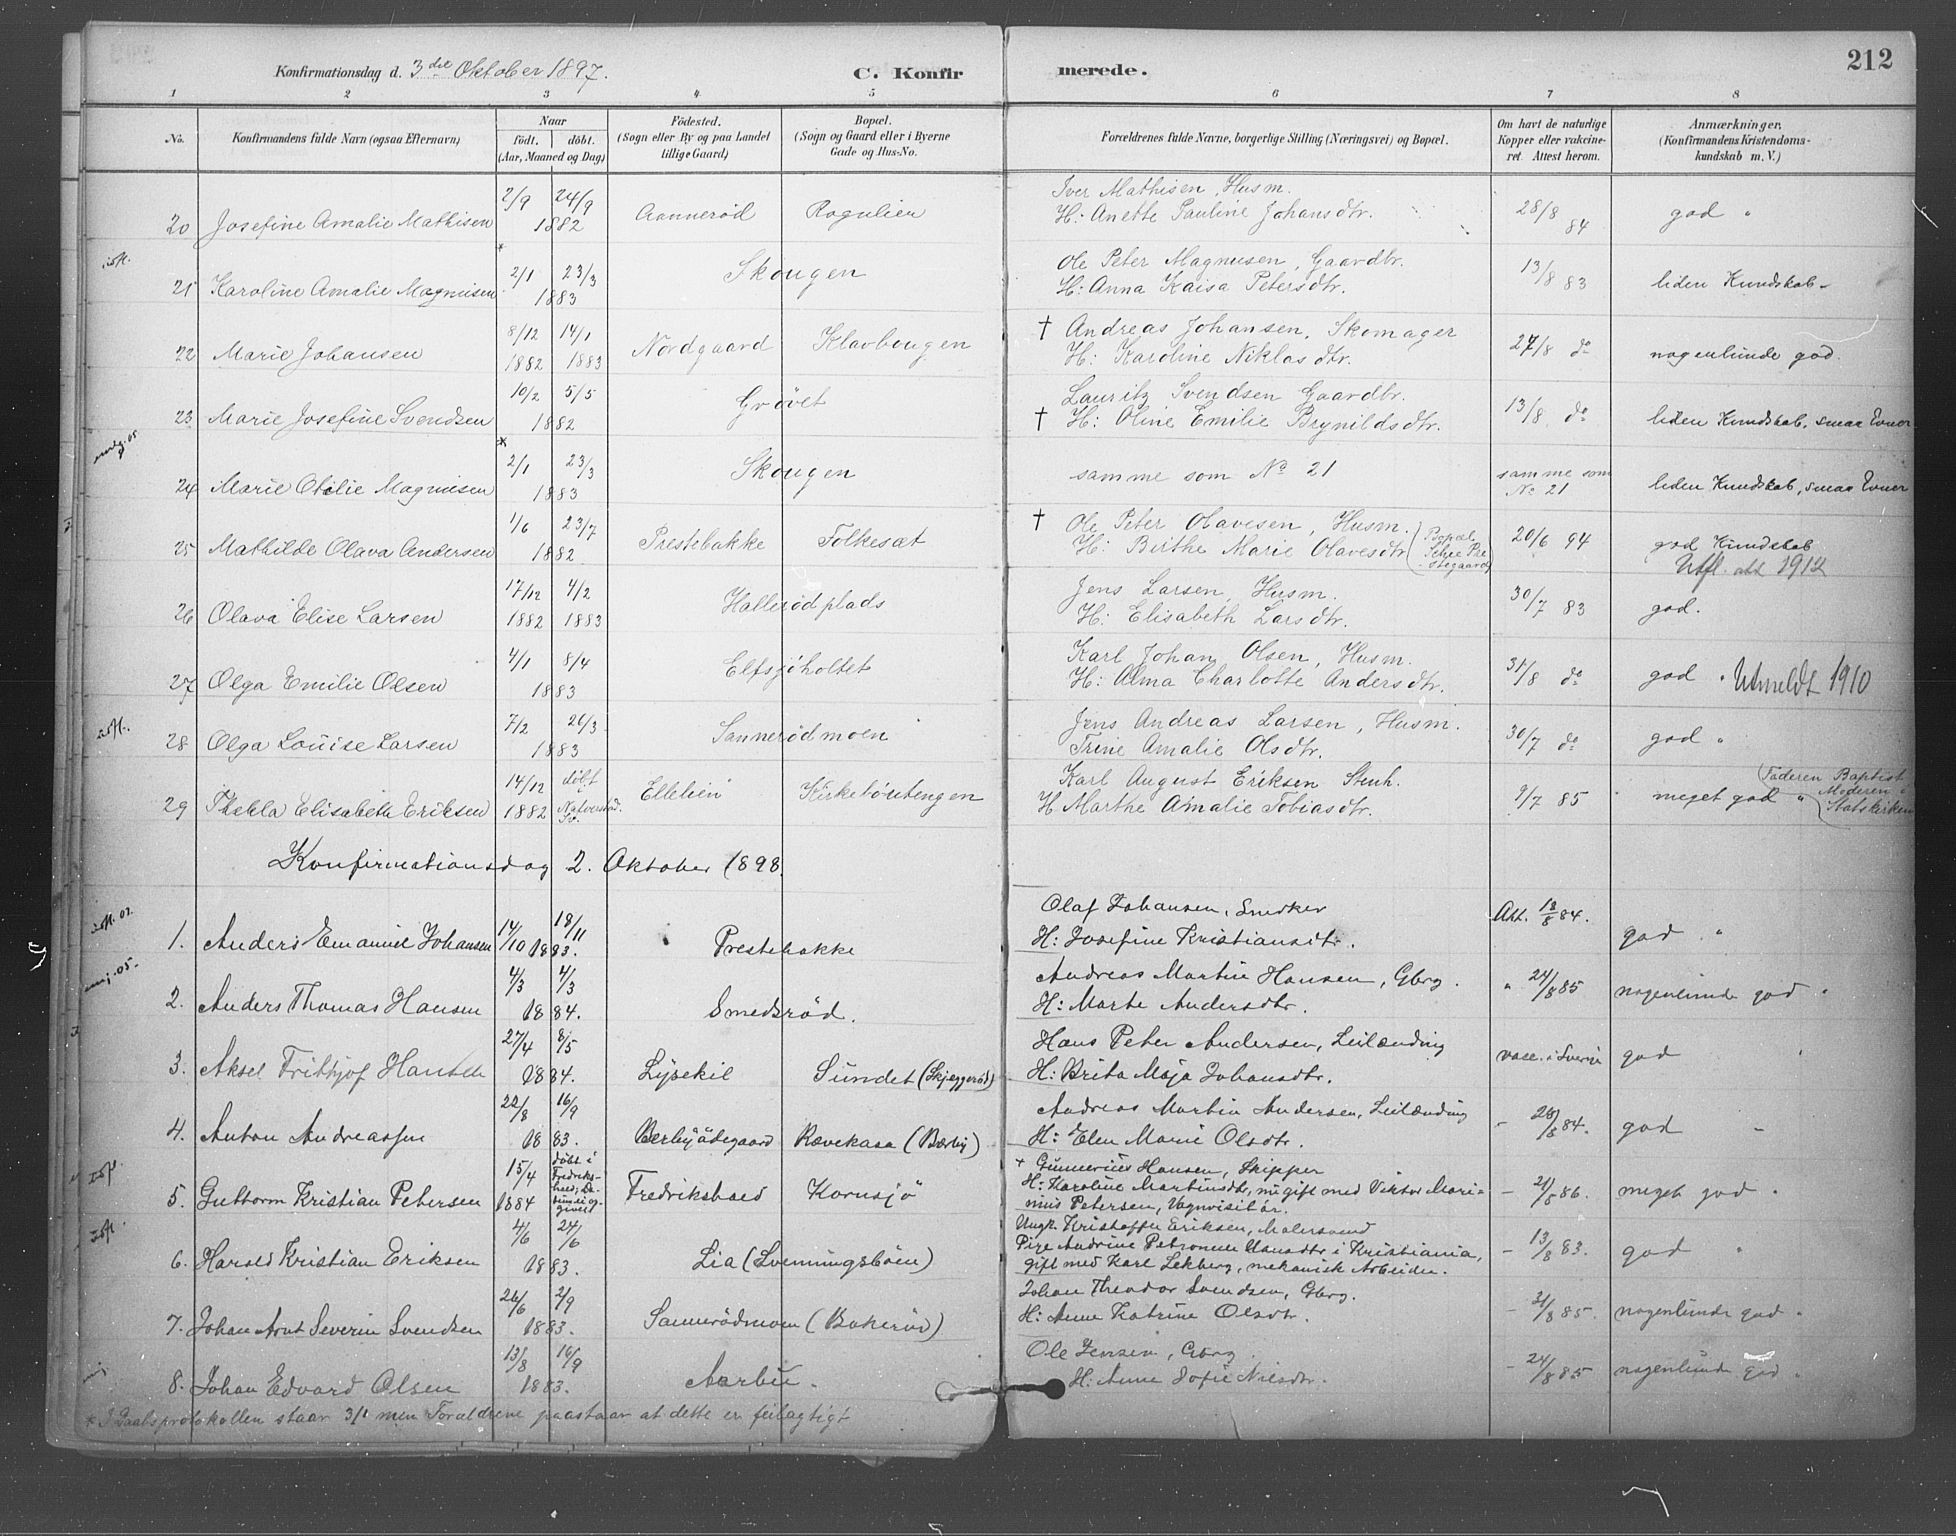 Konfirmationsdag d. 3die Oktober 1897.
C. Konfirmerede.
212
1 2 3 4 5 6 7 8
No. Konfirmandens fulde Navn (ogsaa Efternavn) Naar født. døbt. (Aar, Maaned og Dag) Fødested. (Sogn eller By og paa Landet tillige Gaard) Bopæl. (Sogn og Gaard eller i Byerne Gade og Hus-No. Forældrenes fulde Navne, borgerlige Stilling (Næringsvei) og Bopæl. Om havt de naturlige Kopper eller vakcineret. Attest herom. Anmærkninger. (Konfirmandens Kristendomskundskab m. V.)
20 Josefine Amalie Mathisen 2/9 24/9 1882 Rogulien
Iver Mathisen, Husm.
H: Anette Pauline Johansdtr. 28/8 84 god "
21 Karoline Amalie Magnusen * 2/1 23/3 1883 Skougen
Ole Peter Magnusen, Gaardbr.
H: Anna Kaisa Petersdtr. 13/8 83 liden Kundskab
22 Marie Johansen 8/12 1882 14/1 1883 Nordgaard Klavbougen
† Andreas Johansen, Skomager
H: Karoline Niklasdtr. 27/8 do nogenlunde god.
23 Marie Josefine Svendsen 10/2 5/5 1882 Grøvet
Lauritz Svendsen Gaardbr.
† H: Oline Emilie Brynildsdtr. 13/8 do liden Kundskab, smaa Evner
24 Marie Otilie Magnusen * 2/1 23/3 1883 Skougen
samme som No 21 samme som No 21 liden Kundskab, smaa Evner
25 Mathilde Olava Andersen 1/6 23/7 1882 Prestebakke Folkesæt
† Ole Peter Olavesen, Husm.
H: Birthe Marie Olavesdtr (Bopæl 20/6 94 god Kundskab
Utfl. att 1912
26 Olava Elise Larsen 17/12 1882 4/2 1883 Hallerødplads
Jens Larsen, Husm.
H: Elisabeth Larsdtr. 30/7 83 god.
27 Olga Emilie Olsen 4/1 8/4 1883 Elfsjøholtet
Karl Johan Olsen, Husm.
H: Alma Charlotte Andersdtr. 31/8 do god " Utmeldt 1910
28 Olga Louise Larsen 7/2 26/3 1883 Sannerødmoen
Jens Andreas Larsen, Husm.
Trine Amalie Olsdtr. 30/7 do god "
29 Thekla Elisabeth Eriksen 14/12 1882 døbt i Ellelien Kirkebøutengen
Karl August Eriksen Stenh.
H Marthe Amalie Tobiasdtr. 9/7 85 meget god " (Faderen Baptist
Moderen i
Statskirken
Konfirmationsdag 2. Oktober 1898.
1. Anders Emanuel Johansen 14/10 18/11 1883. Prestebakke
Olaf Johansen, Snedker
H: Josefine Kristiansdtr. Att. 13/8 84. god "
2. Anders Thomas Hansen 4/3 4/3 1884. Smedsrød.
Andreas Martin Hansen, Gbrg.
H: Marte Andersdtr. " 24/8 85 nogenlunde god "
3. Aksel Frithjof Hansen 27/4 8/5 1884. Lysekil Sundet (Skjeggerød)
Hans Peter Andersen, Leilænding
H: Brita Maja Johansdtr. vacc. i Sverie god
4. Anton Andreassen 22/8 16/9 1883. Berbyødegaard Rævekasa (Bærby)
Andreas Martin Andersen, Leilænding
H: Elen Marie Olsdtr. god
5. Guttorm Kristian Petersen 15/4 1884 døbt i Fredrikshald; Datum ei opgivet Fredrikshald Kornsjø
+ Gunnerius Hansen, Skipper
H: Karoline Martinsdtr, nu gift med Viktor Marinius Petersen, Vognvisitør. meget god "
6. Harald Kristian Eriksen 4/6 24/6 1883. Lia (Svenningsbøen)
Ungk. Kristoffer Eriksen, Malersvend
Pige Andrine Petronelle Hansdtr i Kristiania,
gift med Karl Lekberg, mekanisk Arbeider. 13/8 83. god "
7. Johan Arnt Severin Svendsen 26/6 2/9 1883. Sannerødmoen (Bakerød)
Johan Theodor Svendsen, Gbrg.
H: Anne Katrine Olsdtr. 31/8 85. nogenlunde god "
8. Johan Edvard Olsen 13/8 16/9 1883. Aarbu.
Ole Jensen, Gbrg.
H: Anne Sofie Nilsdtr. 24/8 85 nogenlunde god "
* I Daabsprotokollen staar 3/1 men Forældrene paastaar at dette er feilagtigt